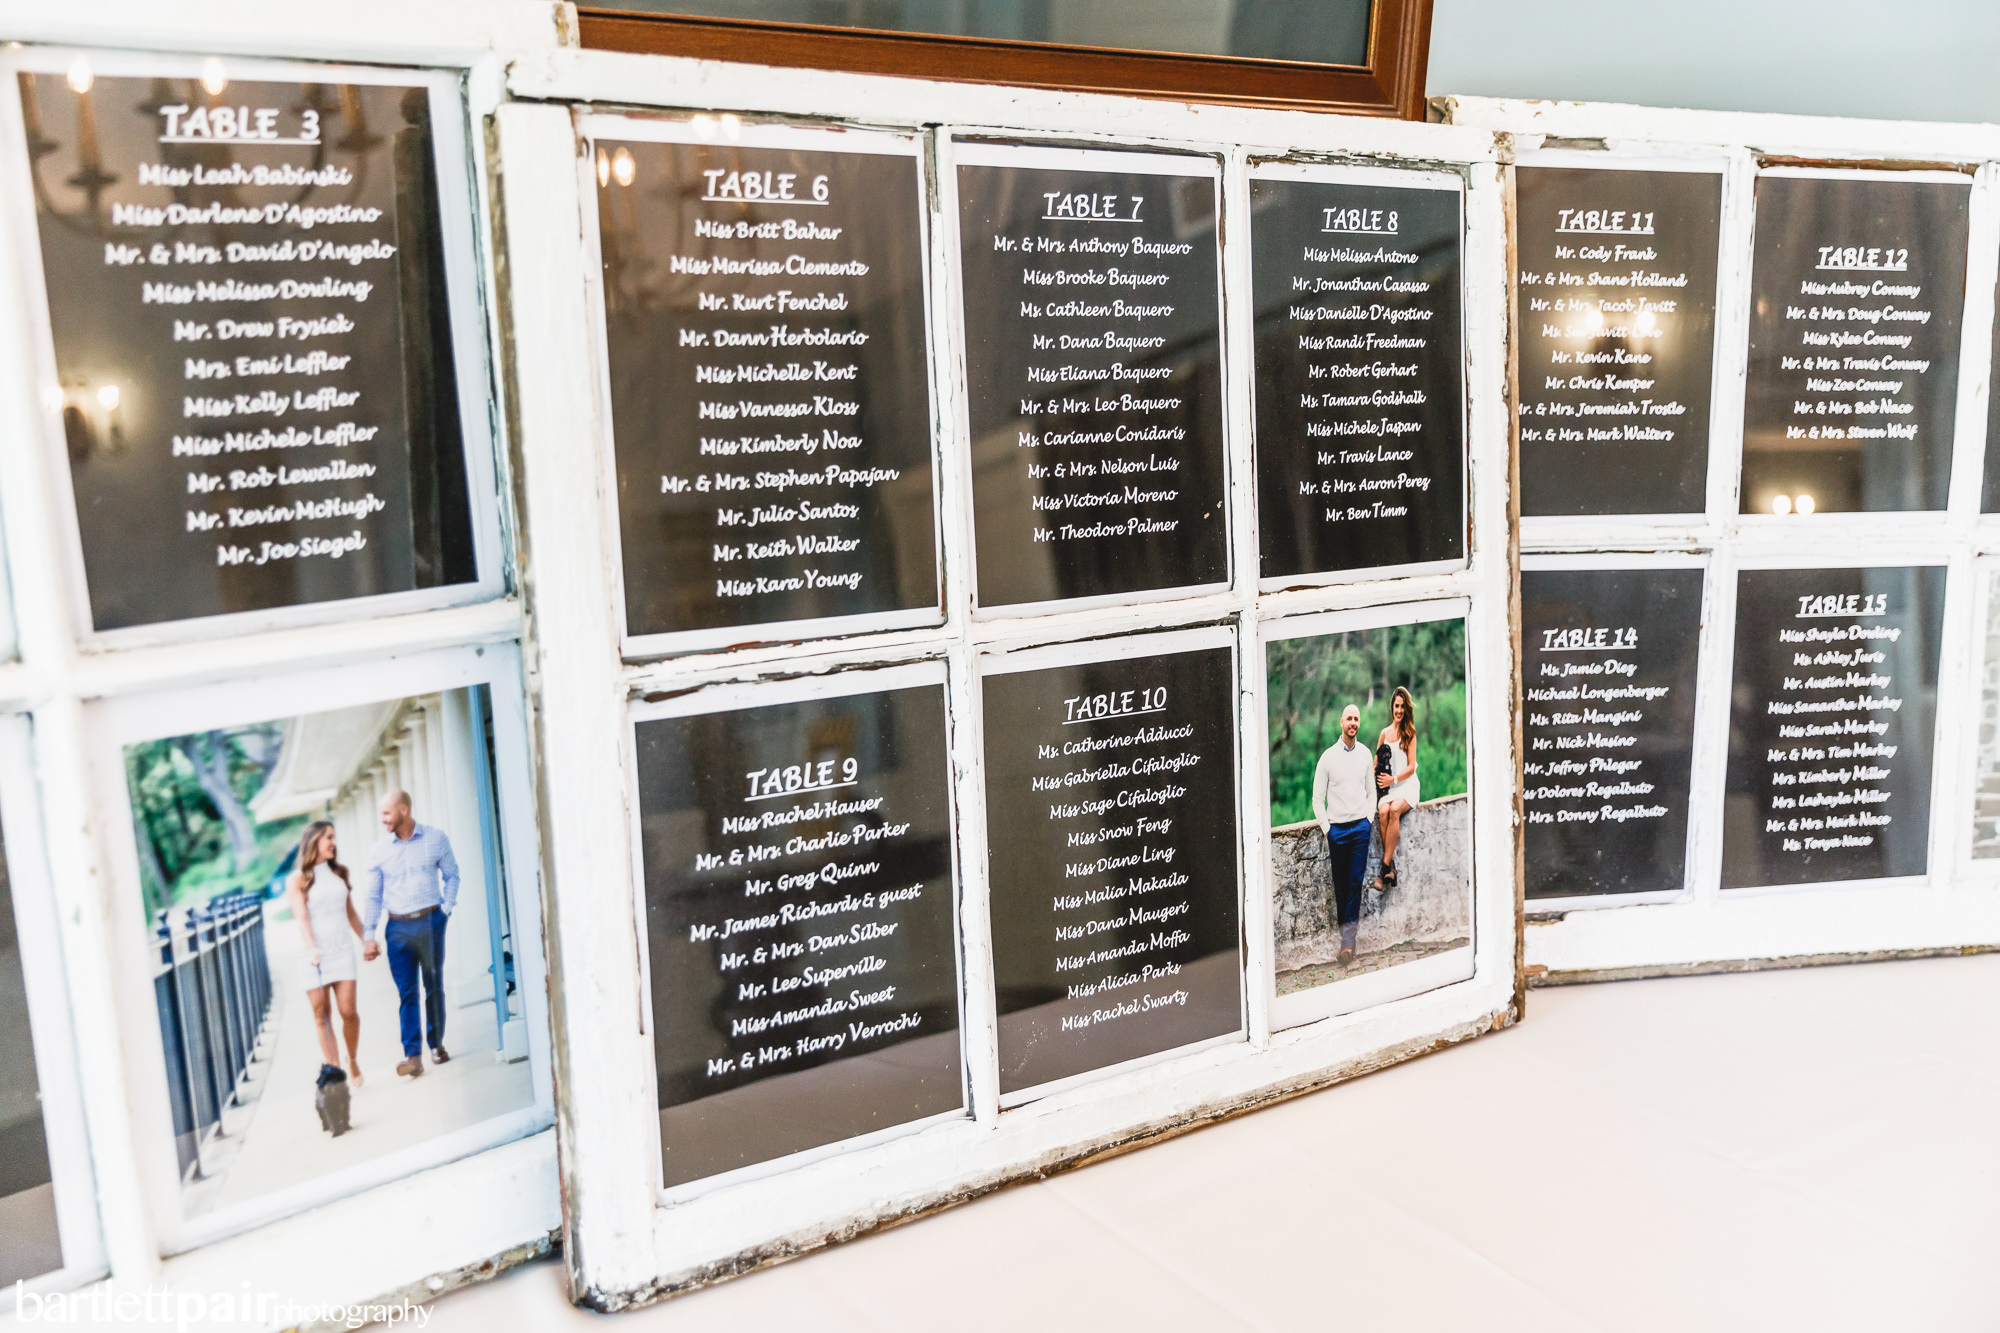 TABLE 3
Miss Leah Babinski
Miss Darlene D'Agostino
Mr. & Mrs. David D'Angelo
Miss Melissa Dowling
Mr. Drew Frysiek
Mrs. Emi Leffler
Miss Kelly Leffler
Miss Michele Leffler
Mr. Rob Lewallen
Mr. Kevin McHugh
Mr. Joe Siegel
TABLE 6
Miss Britt Bahar
Miss Marissa Clemente
Mr. Kurt Fenchel
Mr. Dann Herbolario
Miss Michelle Kent
Miss Vanessa Kloss
Miss Kimberly Noa
Mr. & Mrs. Stephen Papajan
Mr. Julio Santos
Mr. Keith Walker
Miss Kara Young
TABLE 7
Mr. & Mrs. Anthony Baquero
Miss Brooke Baquero
Ms. Cathleen Baquero
Mr. Dana Baquero
Miss Eliana Baquero
Mr. & Mrs. Leo Baquero
Ms. Carianne Conidaris
Mr. & Mrs. Nelson Luis
Miss Victoria Moreno
Mr. Theodore Palmer
TABLE 8
Miss Melissa Antone
Mr. Jonanthan Casassa
Miss Danielle D'Agostino
Miss Randi Freedman
Mr. Robert Gerhart
Ms. Tamara Godshalk
Miss Michele Jaspan
Mr. Travis Lance
Mr. & Mrs. Aaron Perez
Mr. Ben Timm
TABLE 9
Miss Rachel Hauser
Mr. & Mrs. Charlie Parker
Mr. Greg Quinn
Mr. James Richards & guest
Mr. & Mrs. Dan Silber
Mr. Lee Superville
Miss Amanda Sweet
Mr. & Mrs. Harry Verrochi
TABLE 10
Ms. Catherine Adducci
Miss Gabriella Cifaloglio
Miss Sage Cifaloglio
Miss Snow Feng
Miss Diane Ling
Miss Malia Makaila
Miss Dana Maugeri
Miss Amanda Moffa
Miss Alicia Parks
Miss Rachel Swartz
TABLE 11
Mr. Cody Frank
Mr. & Mrs. Shane Holland
Mr. & Mrs. Jacob Javitt
Ms. Javitt
Mr. Kevin Kane
Mr. Chris Kemper
Mr. & Mrs. Jeremiah Trostle
Mr. & Mrs. Mark Walters
TABLE 12
Miss Aubrey Conway
Mr. & Mrs. Doug Conway
Miss Kylee Conway
Mr. & Mrs. Travis Conway
Miss Zoe Conway
Mr. & Mrs. Bob Nace
Mr. & Mrs. Steven Wolf
TABLE 14
Ms. Jamie Diez
Michael Longenberger
Ms. Rita Mangini
Mr. Nick Masino
Mr. Jeffrey Phlegar
Dolores Regalbuto
Mrs. Donny Regalbuto
TABLE 15
Miss Shayla Dowling
Ms. Ashley Juris
Mr. Austin Markey
Miss Samantha Markey
Miss Sarah Markey
Mr. & Mrs. Tim Markey
Mrs. Kimberly Miller
Mrs. Lashayla Miller
Mr. & Mrs. Mark Nace
Ms. Tonya Nace
bartlettpairphotography